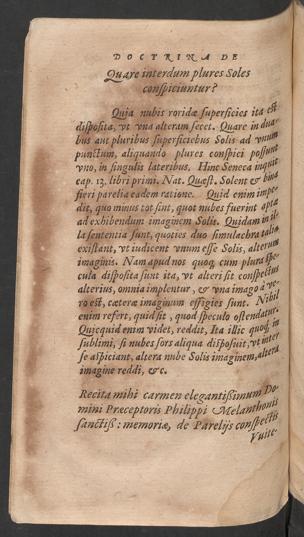 DOCTRINA DE
Quare interdum plures Soles
conspiciuntur?
Quia nubis roridæ superficies ita est
disposita, vt vna alteram secet. Quare in dua-
bus aut pluribus superficiebus Solis ad vnum
punctum, aliquando plures conspici possunt
vno, in singulis lateribus. Hinc Seneca inquit
cap. 13. libri primi. Nat. Quæst. Solent & bina
fieri parelia eadem ratione. Quid enim impe-
dit, quo minus tot sint, quot nubes fuerint aptæ
ad exhibendum imaginem Solis. Quidam in il-
la sententia sunt, quoties duo simulachra talia
existant, vt iudicent vnum esse Solis, alterum
imaginis. Nam apud nos quoq; cum plura spe-
cula disposita sunt ita, vt alteri sit conspectus
alterius, omnia implentur, & vna imago à ve-
ro est, cæteræ imaginum effigies sunt. Nihil
enim refert, quid sit, quod speculo ostendatur.
Quicquid enim videt, reddit, Ita illic quoq; in
sublimi, si nubes sors aliqua disposuit, vt inter
se aspiciant, altera nube Solis imaginem, altera
imagine reddi, &c.
Recita mihi carmen elegantißimum Do-
mini Preceptoris Philippi Melanthonis
sanctiß: memoriæ, de Parelijs conspectis
Vuite-